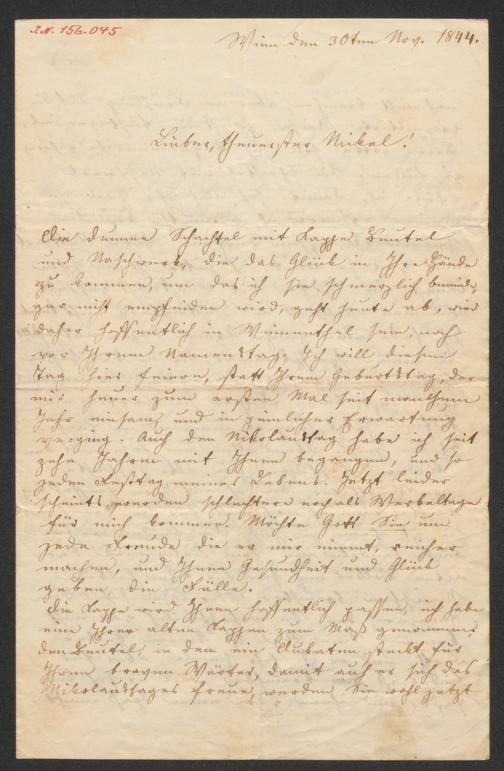 I.N. 156.045
Wien den 30ten Nov. 1844.
Lieber, theuerster Nikel!
Die dumme Schachtel mit Kappe Beutel
und Naschwerk, die das Glück in Ihre Hände
zu kommen, um das ich sie schmerzlich beneide,
gar nicht empfinden wird, geht heute ab, wird
daher hoffentlich in Winnenthal sein, noch
vor Ihrem Namenstag. Ich will diesen
Tag hier feiern, statt Ihrem Geburtstag, der
mir heuer zum ersten Mal seit manchem
Jahr einsam und in peinlicher Erwartung
verging. Auch den Nikolaustag habe ich seit
zehn Jahren mit Ihnen begangen, und so
jeden Festtag meines Lebens. Jetzt leider
scheints, werden schlechtere noch als Werkeltage
für mich kommen. Möchte Gott Sie um
jede Freude die er mir nimmt, reicher
machen, und Ihnen Gesundheit und Glück
geben, die Fülle.
Die Kappe wird Ihnen hoffentlich passen, ich habe
eine Ihrer alten Kappen zum Maß genommen,
den Beutel, in dem ein Dukaten steckt für
Ihren braven Wärter, damit auch er sich des
Nikolaustages freue, werden Sie wohl jetzt